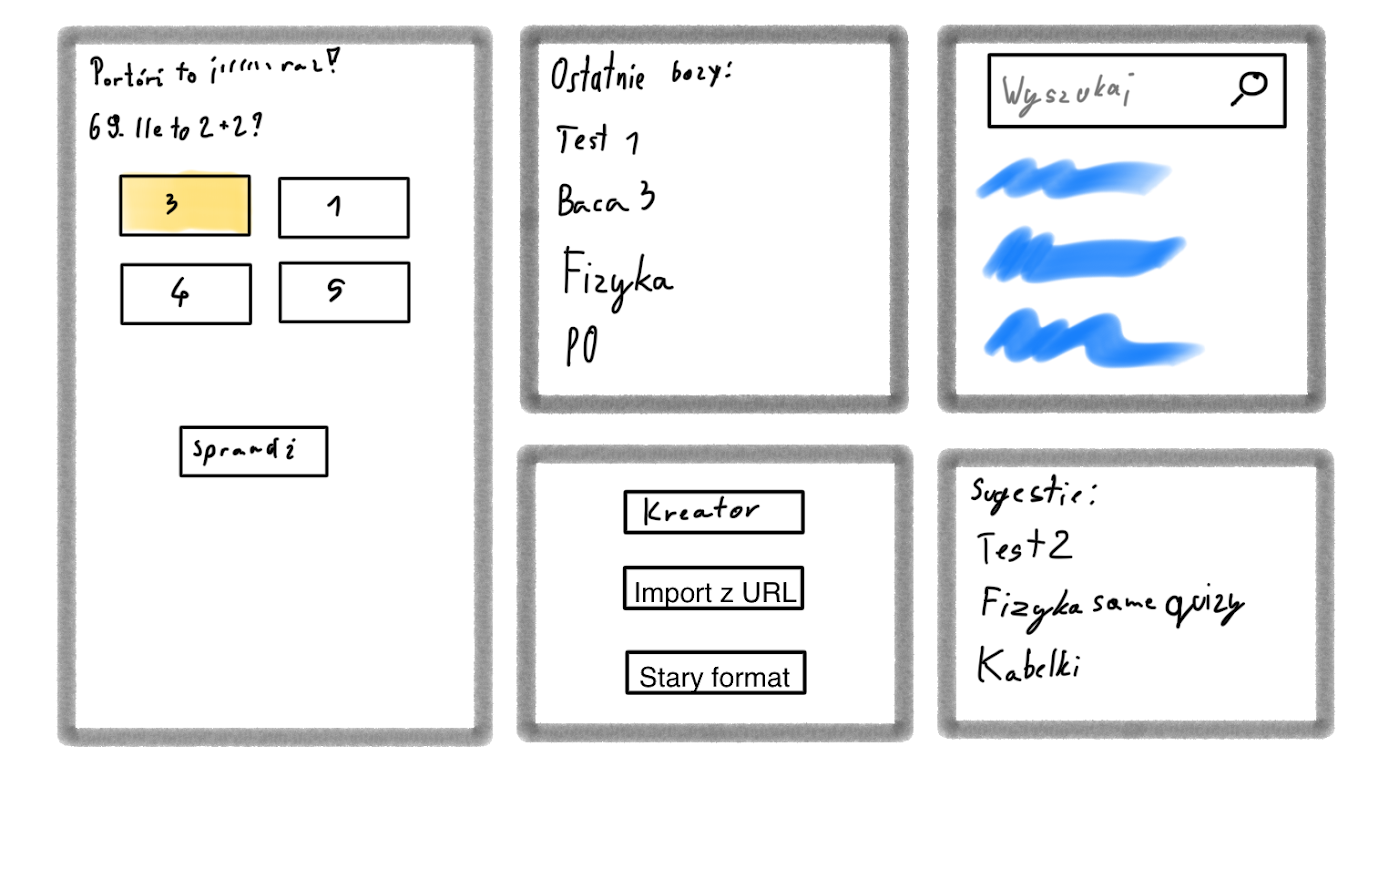 Powtórz to jeszcze raz!
69. Ile to 2+2?
3
1
4
5
Sprawdź
Ostatnie bazy:
Test 1
Baca 3
Fizyka
PO
Wyszukaj
Kreator
Import z URL
Stary format
Sugestie:
Test 2
Fizyka same quizy
Kabelki